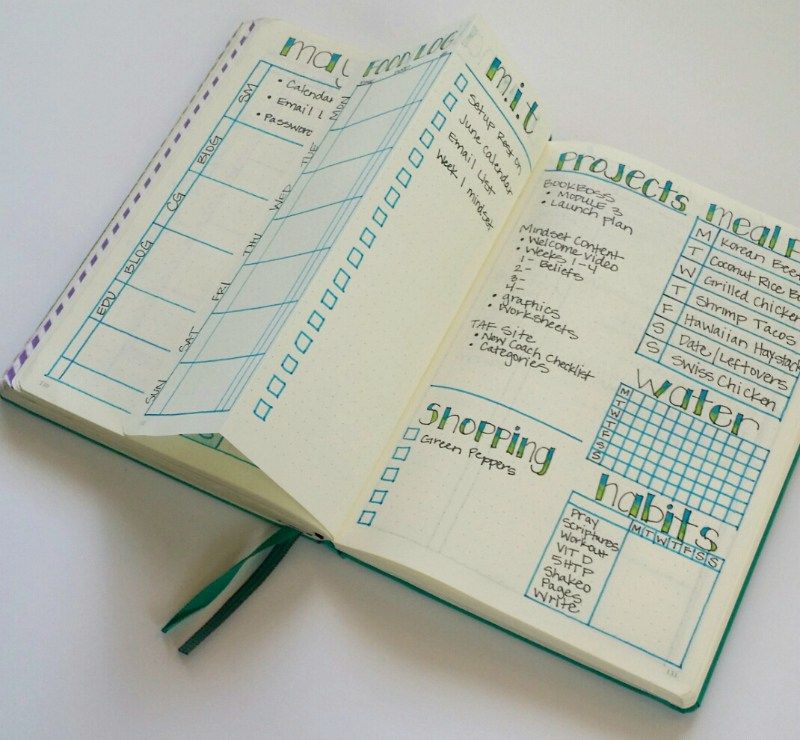 may
SM
• Calendar
• Email L
• Password
BLOG
CG
BLOG
EDU
FOOD LOG
MON
TUE
WED
THU
FRI
SAT
SUN
m.i.t
Setup Post on
June Calendar
Email List
Week 1 mindset
projects
BOOKBOSS
• MODULE 3
• Launch plan
Mindset Content
• Welcome video
• Weeks 1-4
1- Beliefs
2-
3-
4-
• graphics
• Worksheets
TAF Site
• New Coach Checklist
• Categories
shopping
Green Peppers
MEALP
M Korean Beef
T Coconut Rice B
W Grilled Chicken
T Shrimp Tacos
F Hawaiian Haystack
S Date/Leftovers
S Swiss Chicken
water
M
T
W
T
F
S
S
habits
M T W T F S S
Pray
Scriptures
Workout
VIT D
5HTP
Shakeo
Pages
Write
131